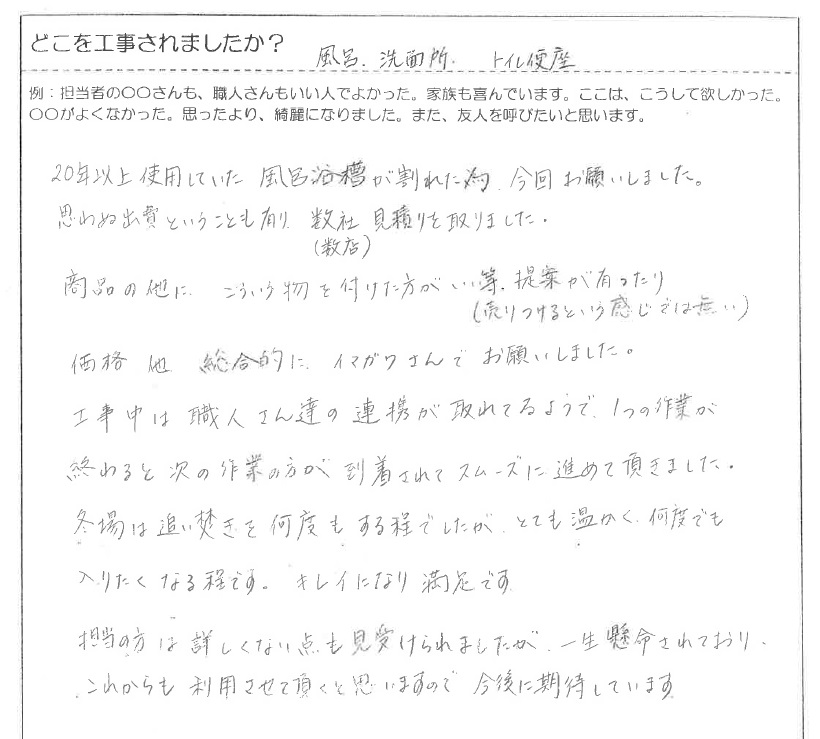 どこを工事されましたか? 風呂、洗面所、 トイレ便座
例:担当者の〇〇さんも、職人さんもいい人でよかった。家族も喜んでいます。ここは、こうして欲しかった。
〇〇がよくなかった。思ったより、綺麗になりました。また、友人を呼びたいと思います。
20年以上使用していた 風呂浴槽が割れた為、今回お願いしました。
思わぬ出費ということも有り、数社 見積りを取りました。
(数店)
商品の他に、こういう物を付けた方がいい等、提案が有ったり
(売りつけるという感じでは無い)
価格 他 総合的に、イマガワさんで お願いしました。
工事中は 職人さん達の連携が取れてるようで、1つの作業が
終わると次の作業の方が 到着されて スムーズに進めて頂きました。
冬場は追い焚きを何度もする程でしたが、とても温かく、何度でも
入りたくなる程です。 キレイになり 満足です
担当の方は詳しくない点も見受けられましたが、一生懸命されており、
これからも利用させて頂くと思いますので 今後に期待しています